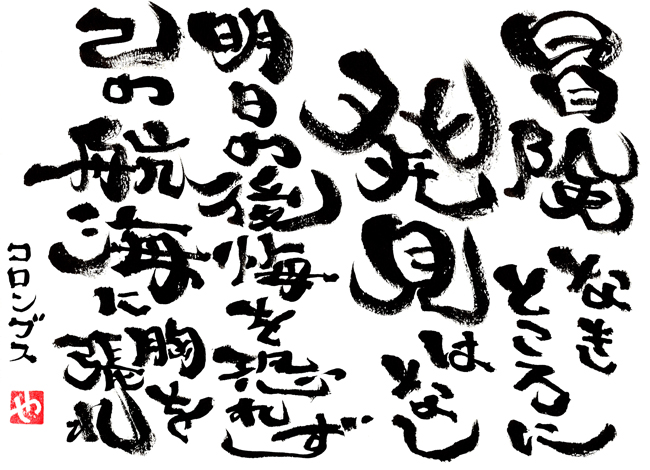 冒険なき
ところに
発見は
なし
明日の後悔を恐れず
己の航海に胸を
張れ
コロンブス
や